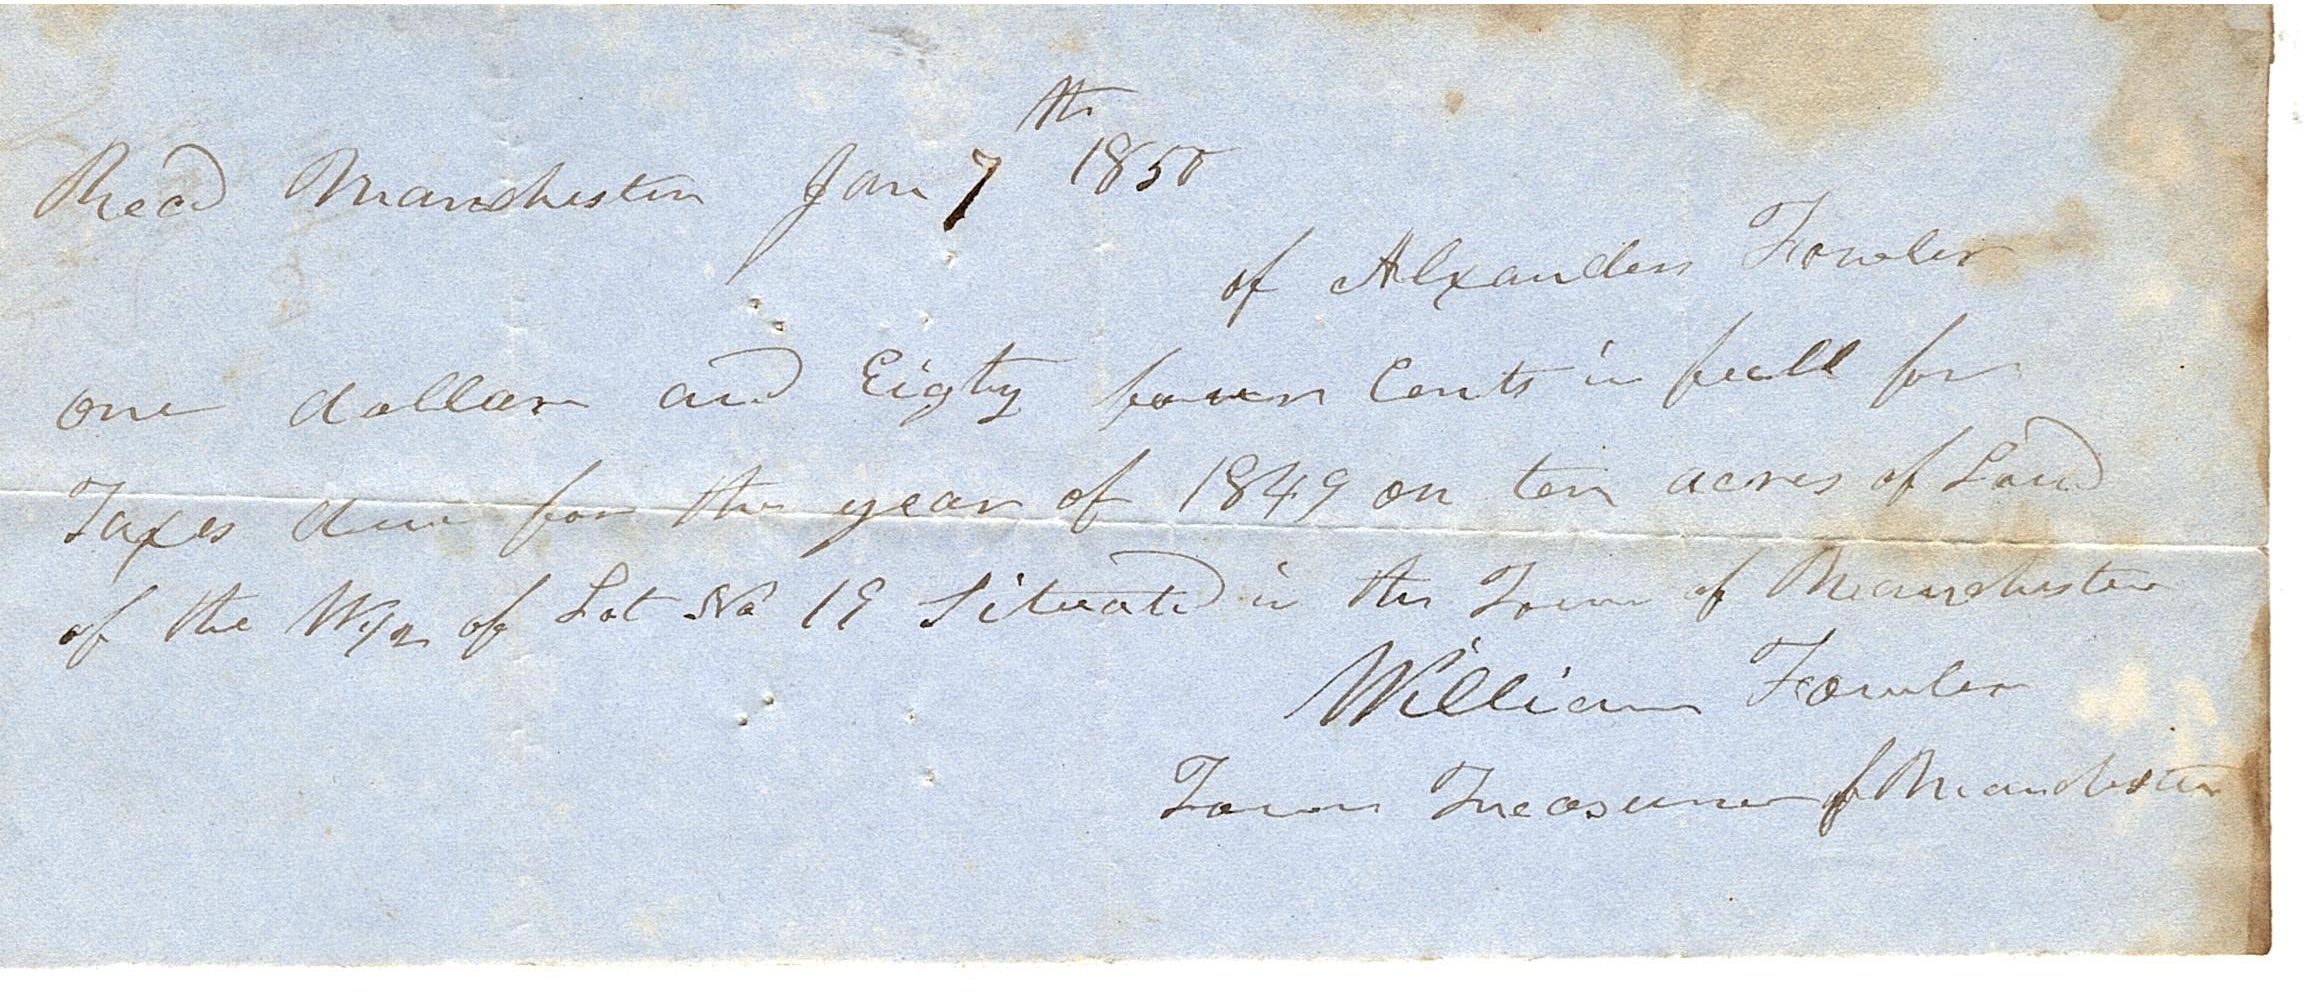 Recd Manchester Jan 7th 1850
of Alxander Fowler
one dollar and Eigty four Cents in full for
Taxes due for the year of 1849 on ten acres of Land
of the W 1/2 of Lot No 19 Situated in the Town of Manchester
William Fowler
Town Treasurer of Manchester